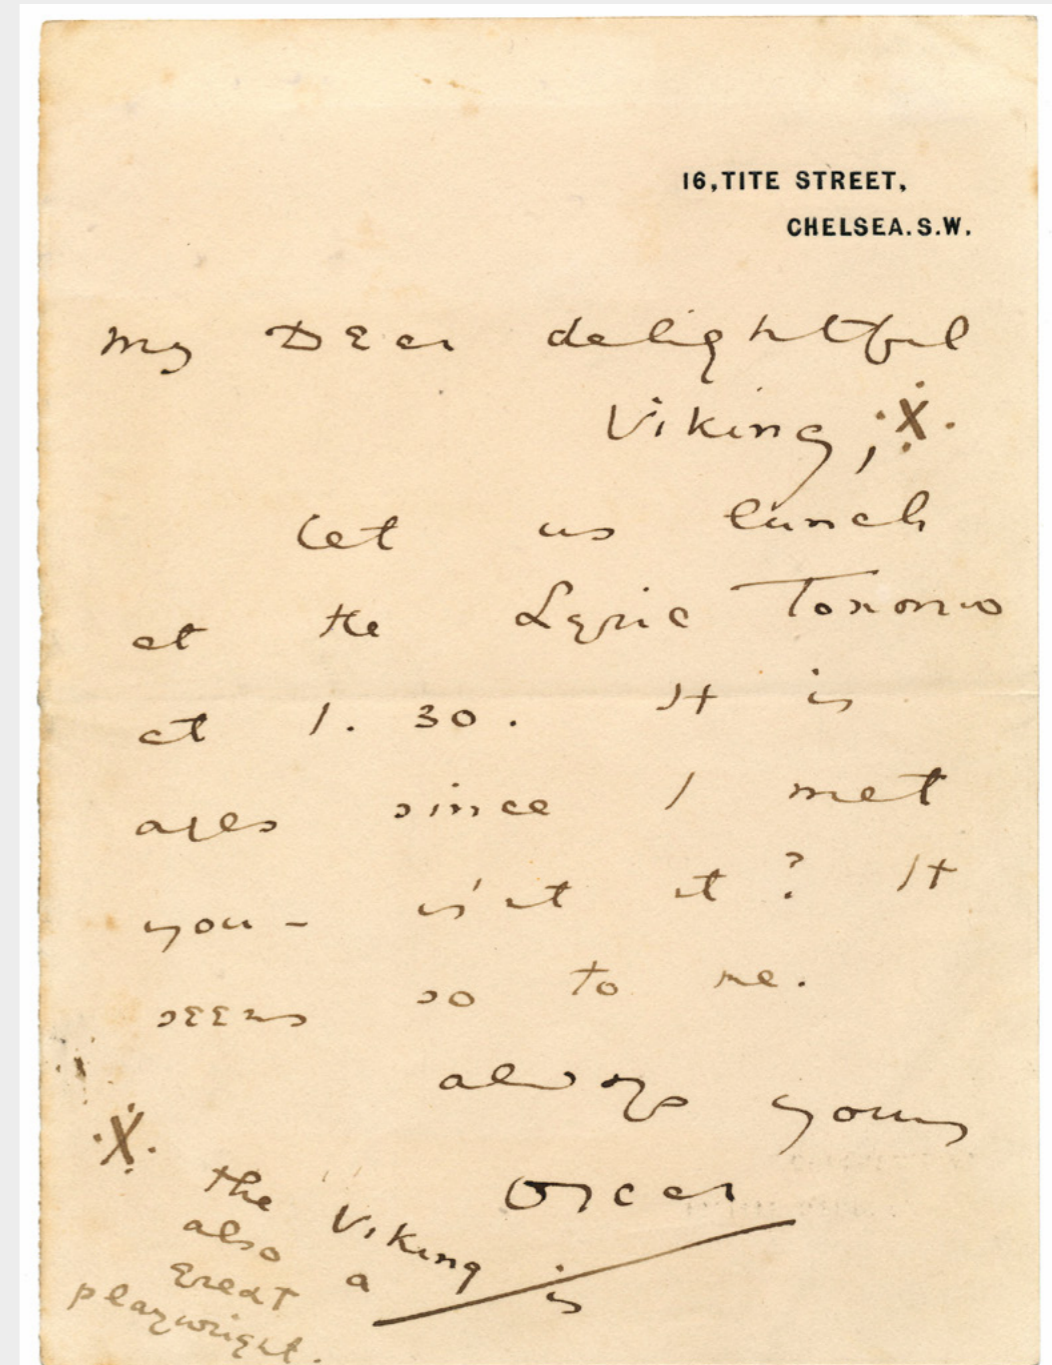 16, TITE STREET,
CHELSEA. S.W.
My Dear delightful
Viking, ※
let us lunch
at the Lyric Tomorrow
at 1.30. It is
ages since I met
you - is'nt it? It
seems so to me.
always yours
Oscar
※ the Viking is
also a
great
playwright.